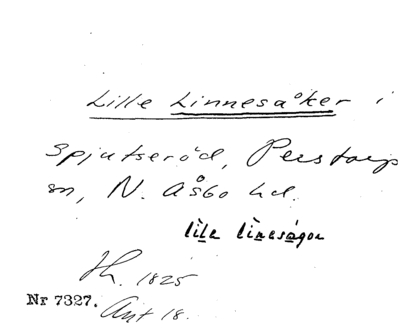 Lille Linnesåker i
Spjutseröd, Perstorp
sn, N. Åsbo hd.
lìle lìneságor
Hh. 1825
Nr 7327. Ant 18.